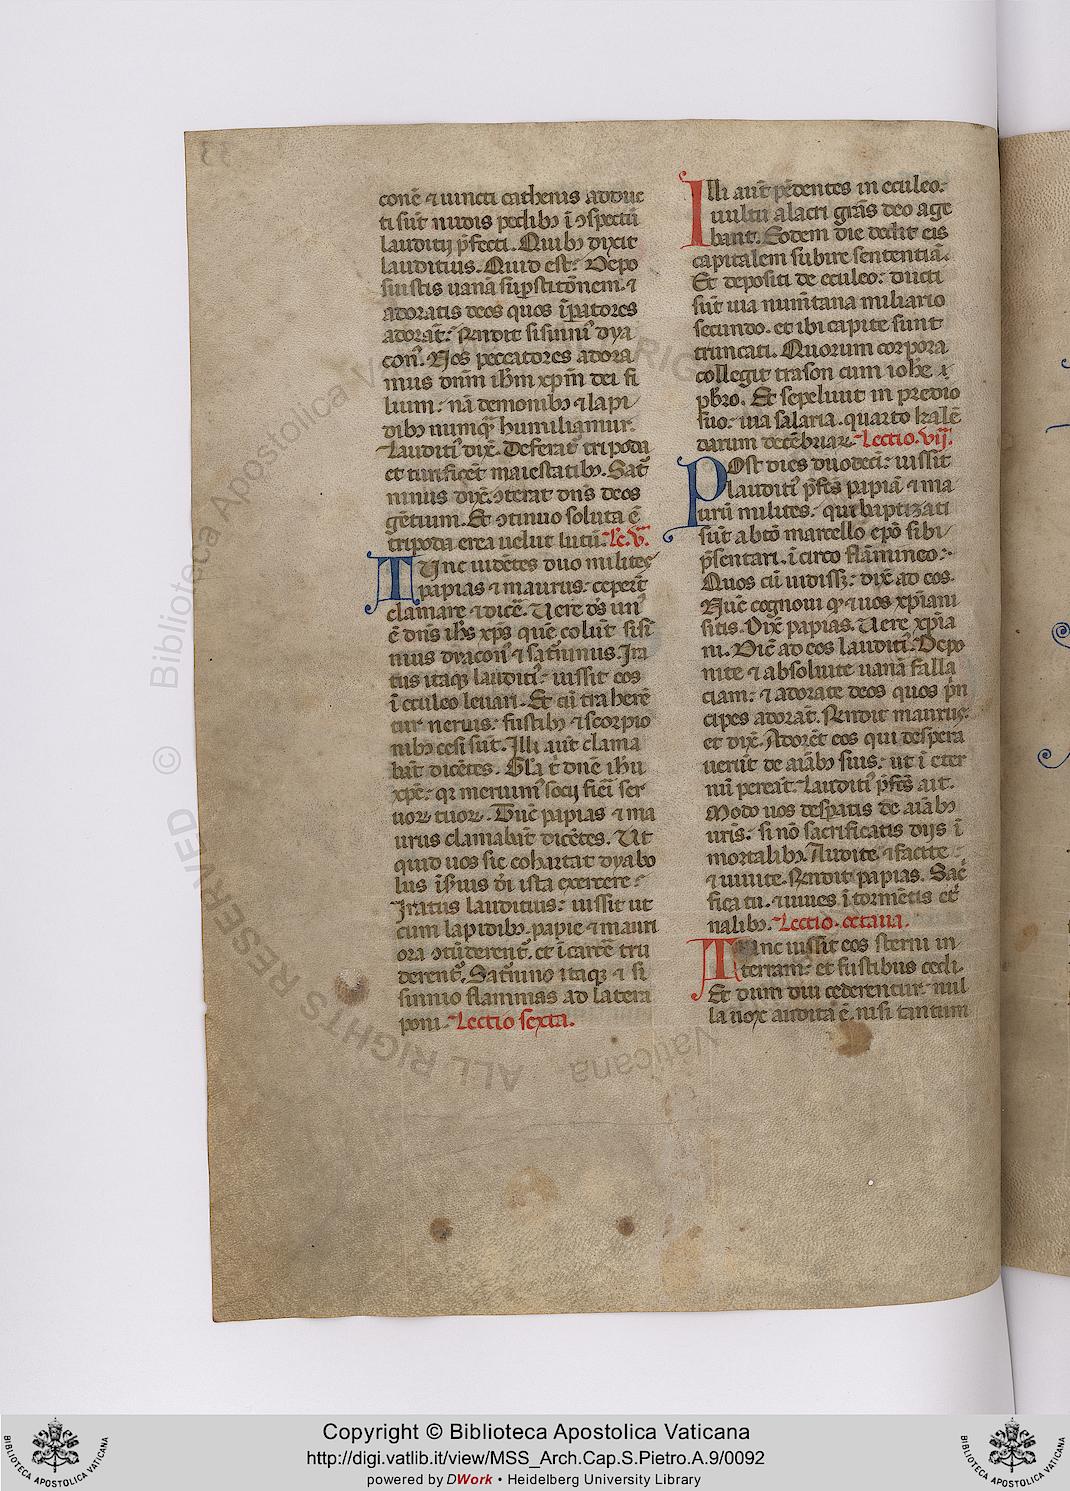 conē ⁊ uincti cathenis adduc
ti sūt nudis pedibꝰ ī ↄspectū
lauditij p̄fecti. Quibꝰ dixit
lauditius. Quid est? Depo
suistis uanā sup̄stitōnem. ⁊
adoratis deos quos īp̄atores
adorāt? R̄ndit sisinniꝰ dya
conꝰ. Nos peccatores adora
mus dnm̄ ihm̄ xp̄m dei fi
lium: nā demonibꝰ ⁊ lapi
dibꝰ numqꝫ humiliamur.
Lauditiꝰ dix̄. Deferat᷑ tripoda
et turificent maiestatibꝰ. Sat᷑
ninus dix̄. ↄterat dn̄s deos
gētium. Et ↄtinuo soluta ē
tripoda erea uelut lutū. Lc̄. v̄.
Tunc uidētes duo milites
papias ⁊ maurus: ceper̄t
clamare ⁊ dicē. Uere ds̄ unꝰ
ē dn̄s ihs̄ xp̄s quē colūt sisī
nius dyaconꝰ ⁊ sat᷑ninus. Ira
tus itaqꝫ lauditiꝰ: iussit eos
ī eculeo leuari. Et cū traherē
tur neruis: fustibꝰ ⁊ scorpio
nibꝰ cesi sūt. Illi aūt clama
bāt dicētes. Gl̄a t̄ dnē ihū
xp̄e: qꝛ meruimꝰ socij fieri ser
uoꝝ tuoꝝ. Tūc papias ⁊ ma
urus clamabāt dicētes. Ut
quid uos sic cohartat dyabo
lus
ista exercere?
Iratus lauditius: iussit ut
cum lapidibꝰ papie ⁊ mauri
ora ↄtūderent᷑. et ī carcē tru
derent᷑. Sat᷑nino itaqꝫ ⁊ si
sinnio flammas ad latera
poni. Lectio sexta.
Illi aūt pēdentes in eculeo:
uultu alacri gr̄as deo age
bant. Eodem die dedit eis
capitalem subire sententiā.
Et depositi de eculeo: ducti
sūt uia num̄tana miliario
secundo. et ibi capite sunt
truncati. Quorum corpora
collegit trason cum ioh̄e
pb̄ro. Et sepeliuit in predio
suo: uia salaria. quarto kalē
darum decēbriaꝝ. Lectio. vij.
Post dies duodeci: iussit
lauditiꝰ p̄fc̄s papiā ⁊ ma
urū milites: qui baptizati
sūt ab̄tō marcello ep̄o sibi
p̄sentari. ī circo flāmineo:
Quos cū uidissꝫ: dix̄ ad eos.
Nūc cognoui qꝫ ⁊ uos xp̄iani
sitis. Dix̄ papias. Uere xp̄ia
ni. Dix̄ ad eos lauditiꝰ. Depo
nite ⁊ absoluite uanā falla
ciam: ⁊ adorate deos quos p̄n
cipes adorāt. R̄ndit maurus:
et dix̄. Adorēt eos qui despera
uerūt de aīabꝰ suis: ut ī eter
nū pereāt. Lauditiꝰ p̄fc̄s ait.
Modo uos desp̄atis de aīabꝰ
uris̄: si nō sacrificatis dijs ī
mortalibꝰ. Audite. ⁊ facite
⁊ uiuite. R̄ndit papias. Sac̄
fica tu. ⁊ uiues ī tormētis et᷑
nalibꝰ. Lectio. octaua.
Tunc iussit eos sterni in
terram: et fustibus cedi.
Et dum diu cederentur: nul
la uox audita ē. nisi tantum
Copyright © Biblioteca Apostolica Vaticana
http://digi.vatlib.it/view/MSS_Arch.Cap.S.Pietro.A.9/0092
powered by DWork • Heidelberg University Library
BIBLIOTECA APOSTOLICA VATICANA
BIBLIOTECA APOSTOLICA VATICANA
© Biblioteca Apostolica Vaticana ALL RIGHTS RESERVED